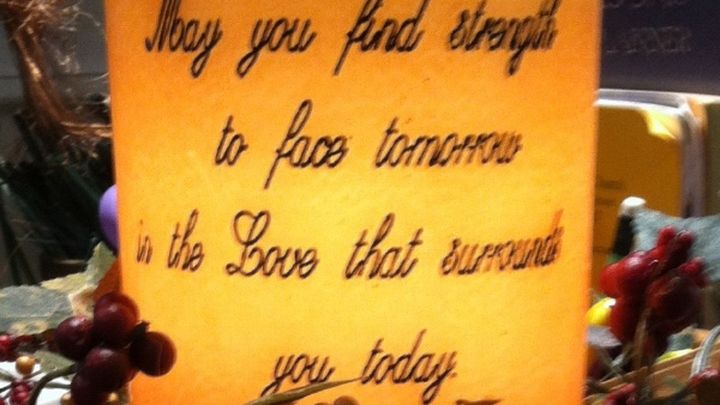 May you find strength
to face tomorrow
in the Love that surrounds
you today.